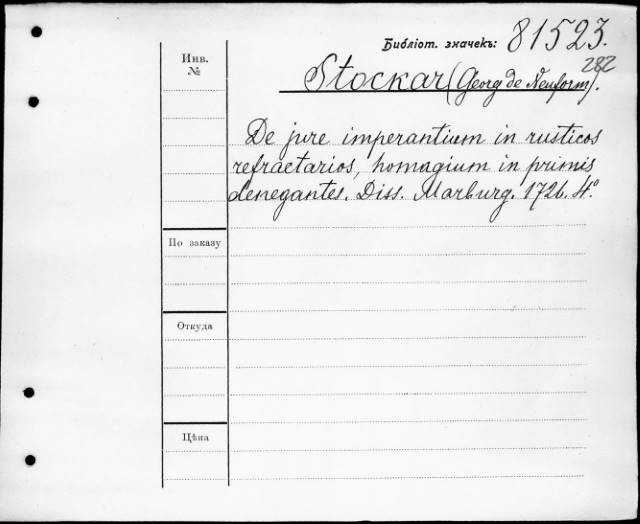 Библіот. значекъ: 81523.
282
Инв.
№
Stockar (Georg de Neuform).
De jure imperantium in rusticos
refractarios, homagium in primis
denegantes. Diss. Marburg. 1726. 4°.
По заказу
Откуда
Цѣна